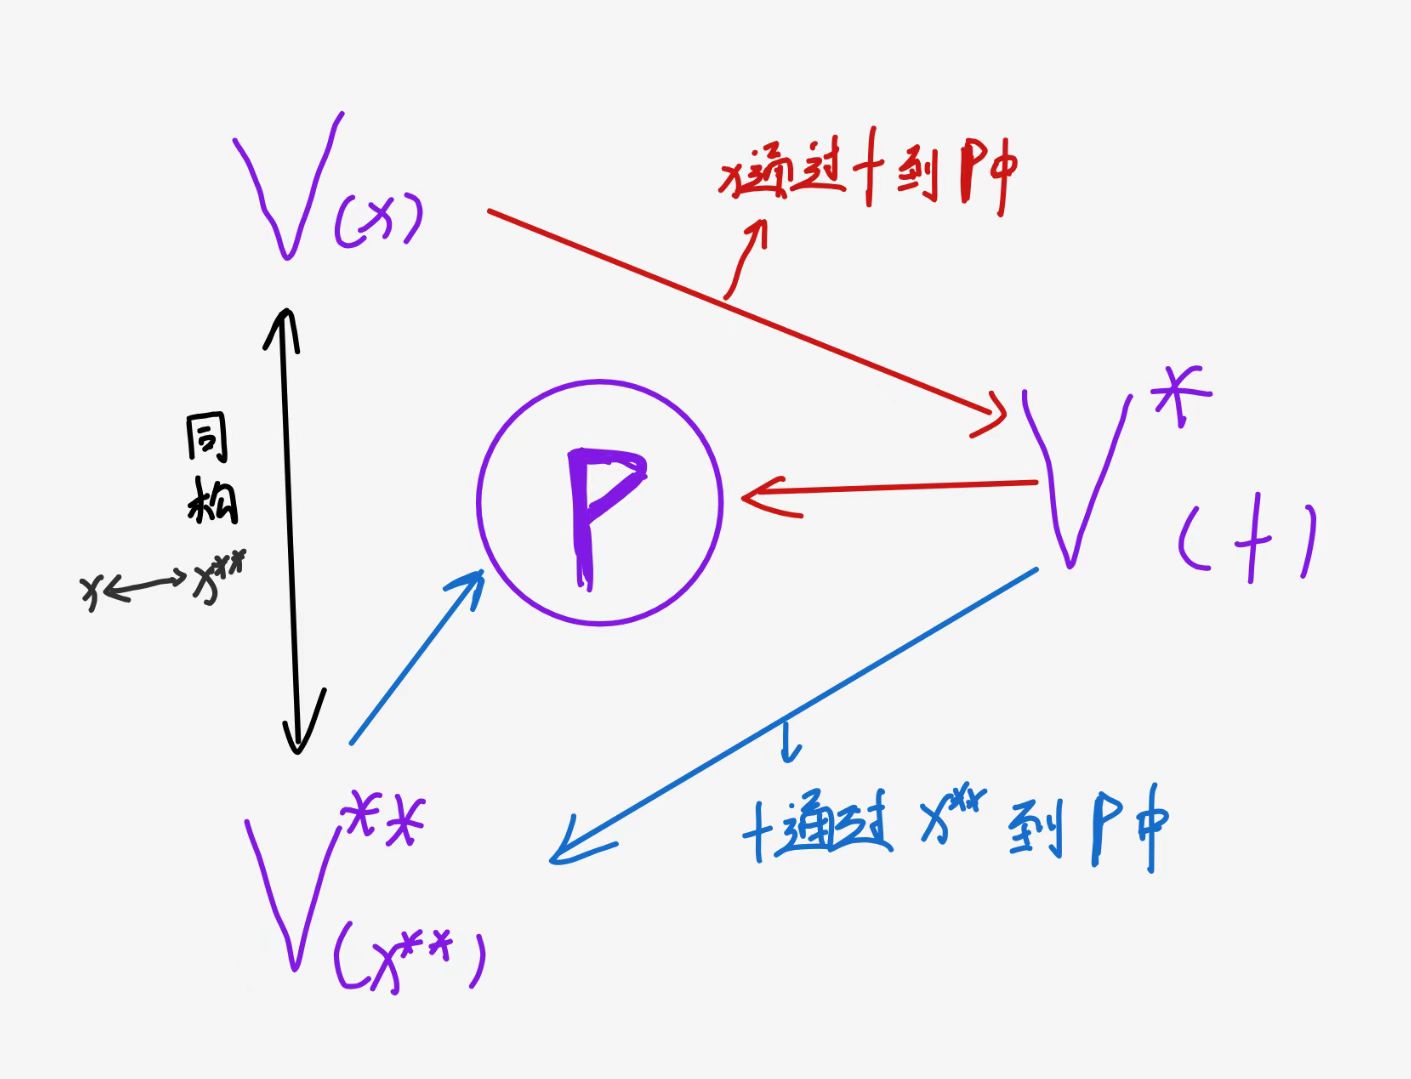 V(x)
x通过f到P中
V*
(f)
P
同构
x↔x**
f通过x**到P中
V**
(x**)